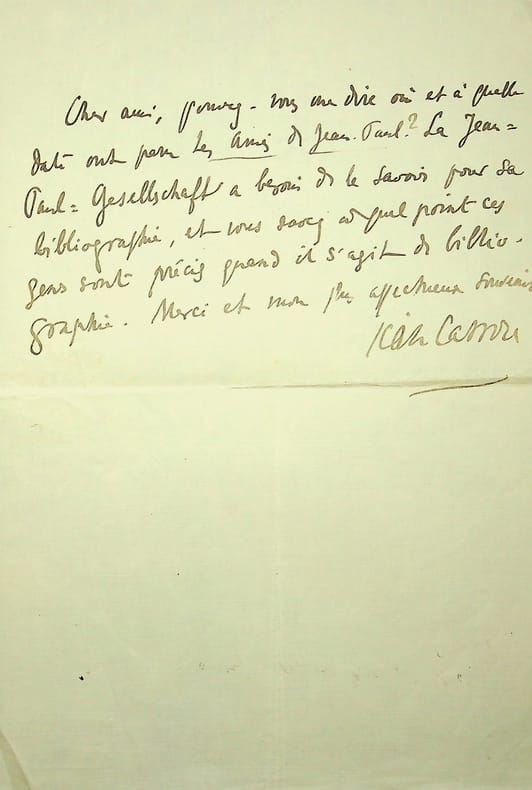 Cher ami, pouvez-vous me dire où et à quelle
date ont paru Les Amis de Jean-Paul? La Jean=
Paul=Gesellschaft a besoin de le savoir pour sa
bibliographie, et vous savez à quel point ces
gens sont précis quand il s'agit de biblio-
graphie. Merci et mon plus affectueux souvenir
Jean Cassou